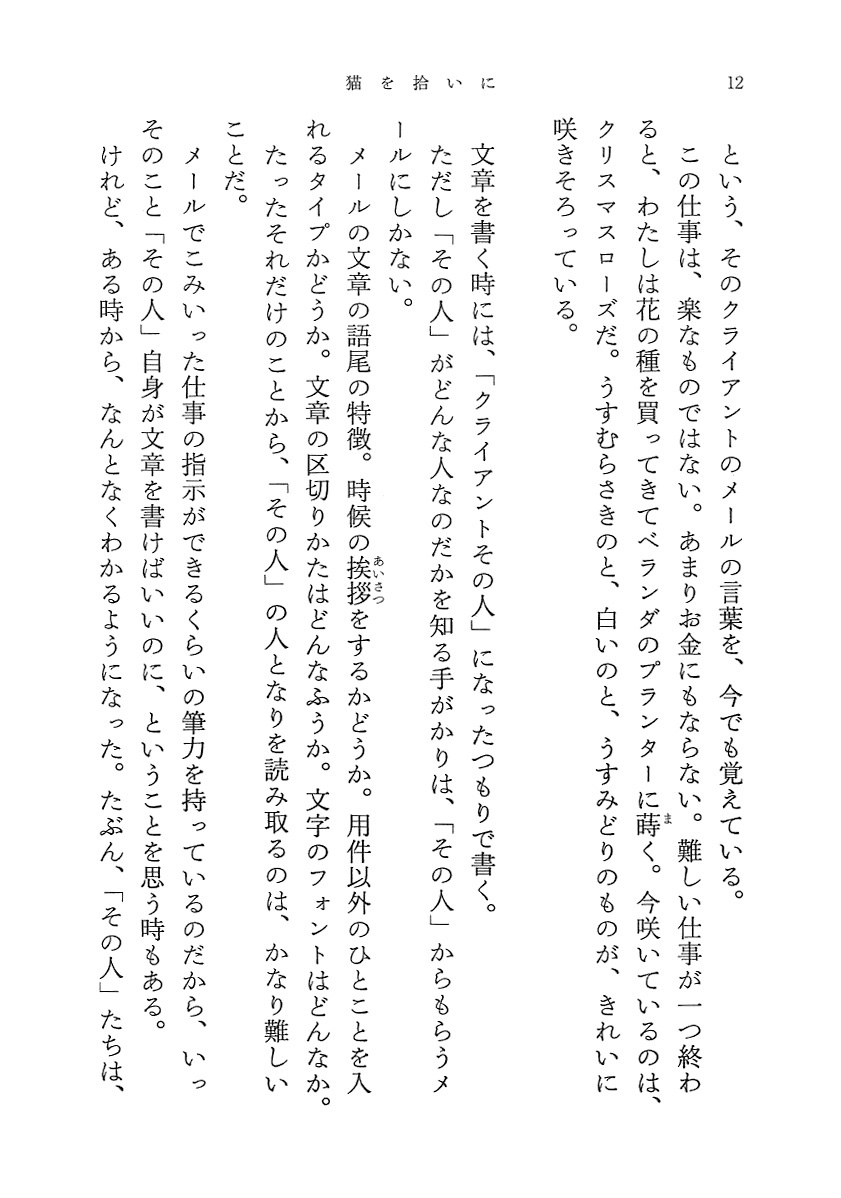 猫を拾いに
12
という、そのクライアントのメールの言葉を、今でも覚えている。
この仕事は、楽なものではない。あまりお金にもならない。難しい仕事が一つ終わ
ると、わたしは花の種を買ってきてベランダのプランターに蒔く。今咲いているのは、
ま
クリスマスローズだ。うすむらさきのと、白いのと、うすみどりのものが、きれいに
咲きそろっている。
文章を書く時には、「クライアントその人」になったつもりで書く。
ただし「その人」がどんな人なのだかを知る手がかりは、「その人」からもらうメ
ールにしかない。
メールの文章の語尾の特徴。時候の挨拶をするかどうか。用件以外のひとことを入
あいさつ
れるタイプかどうか。文章の区切りかたはどんなふうか。文字のフォントはどんなか。
たったそれだけのことから、「その人」の人となりを読み取るのは、かなり難しい
ことだ。
メールでこみいった仕事の指示ができるくらいの筆力を持っているのだから、いっ
そのこと「その人」自身が文章を書けばいいのに、ということを思う時もある。
けれど、ある時から、なんとなくわかるようになった。たぶん、「その人」たちは、